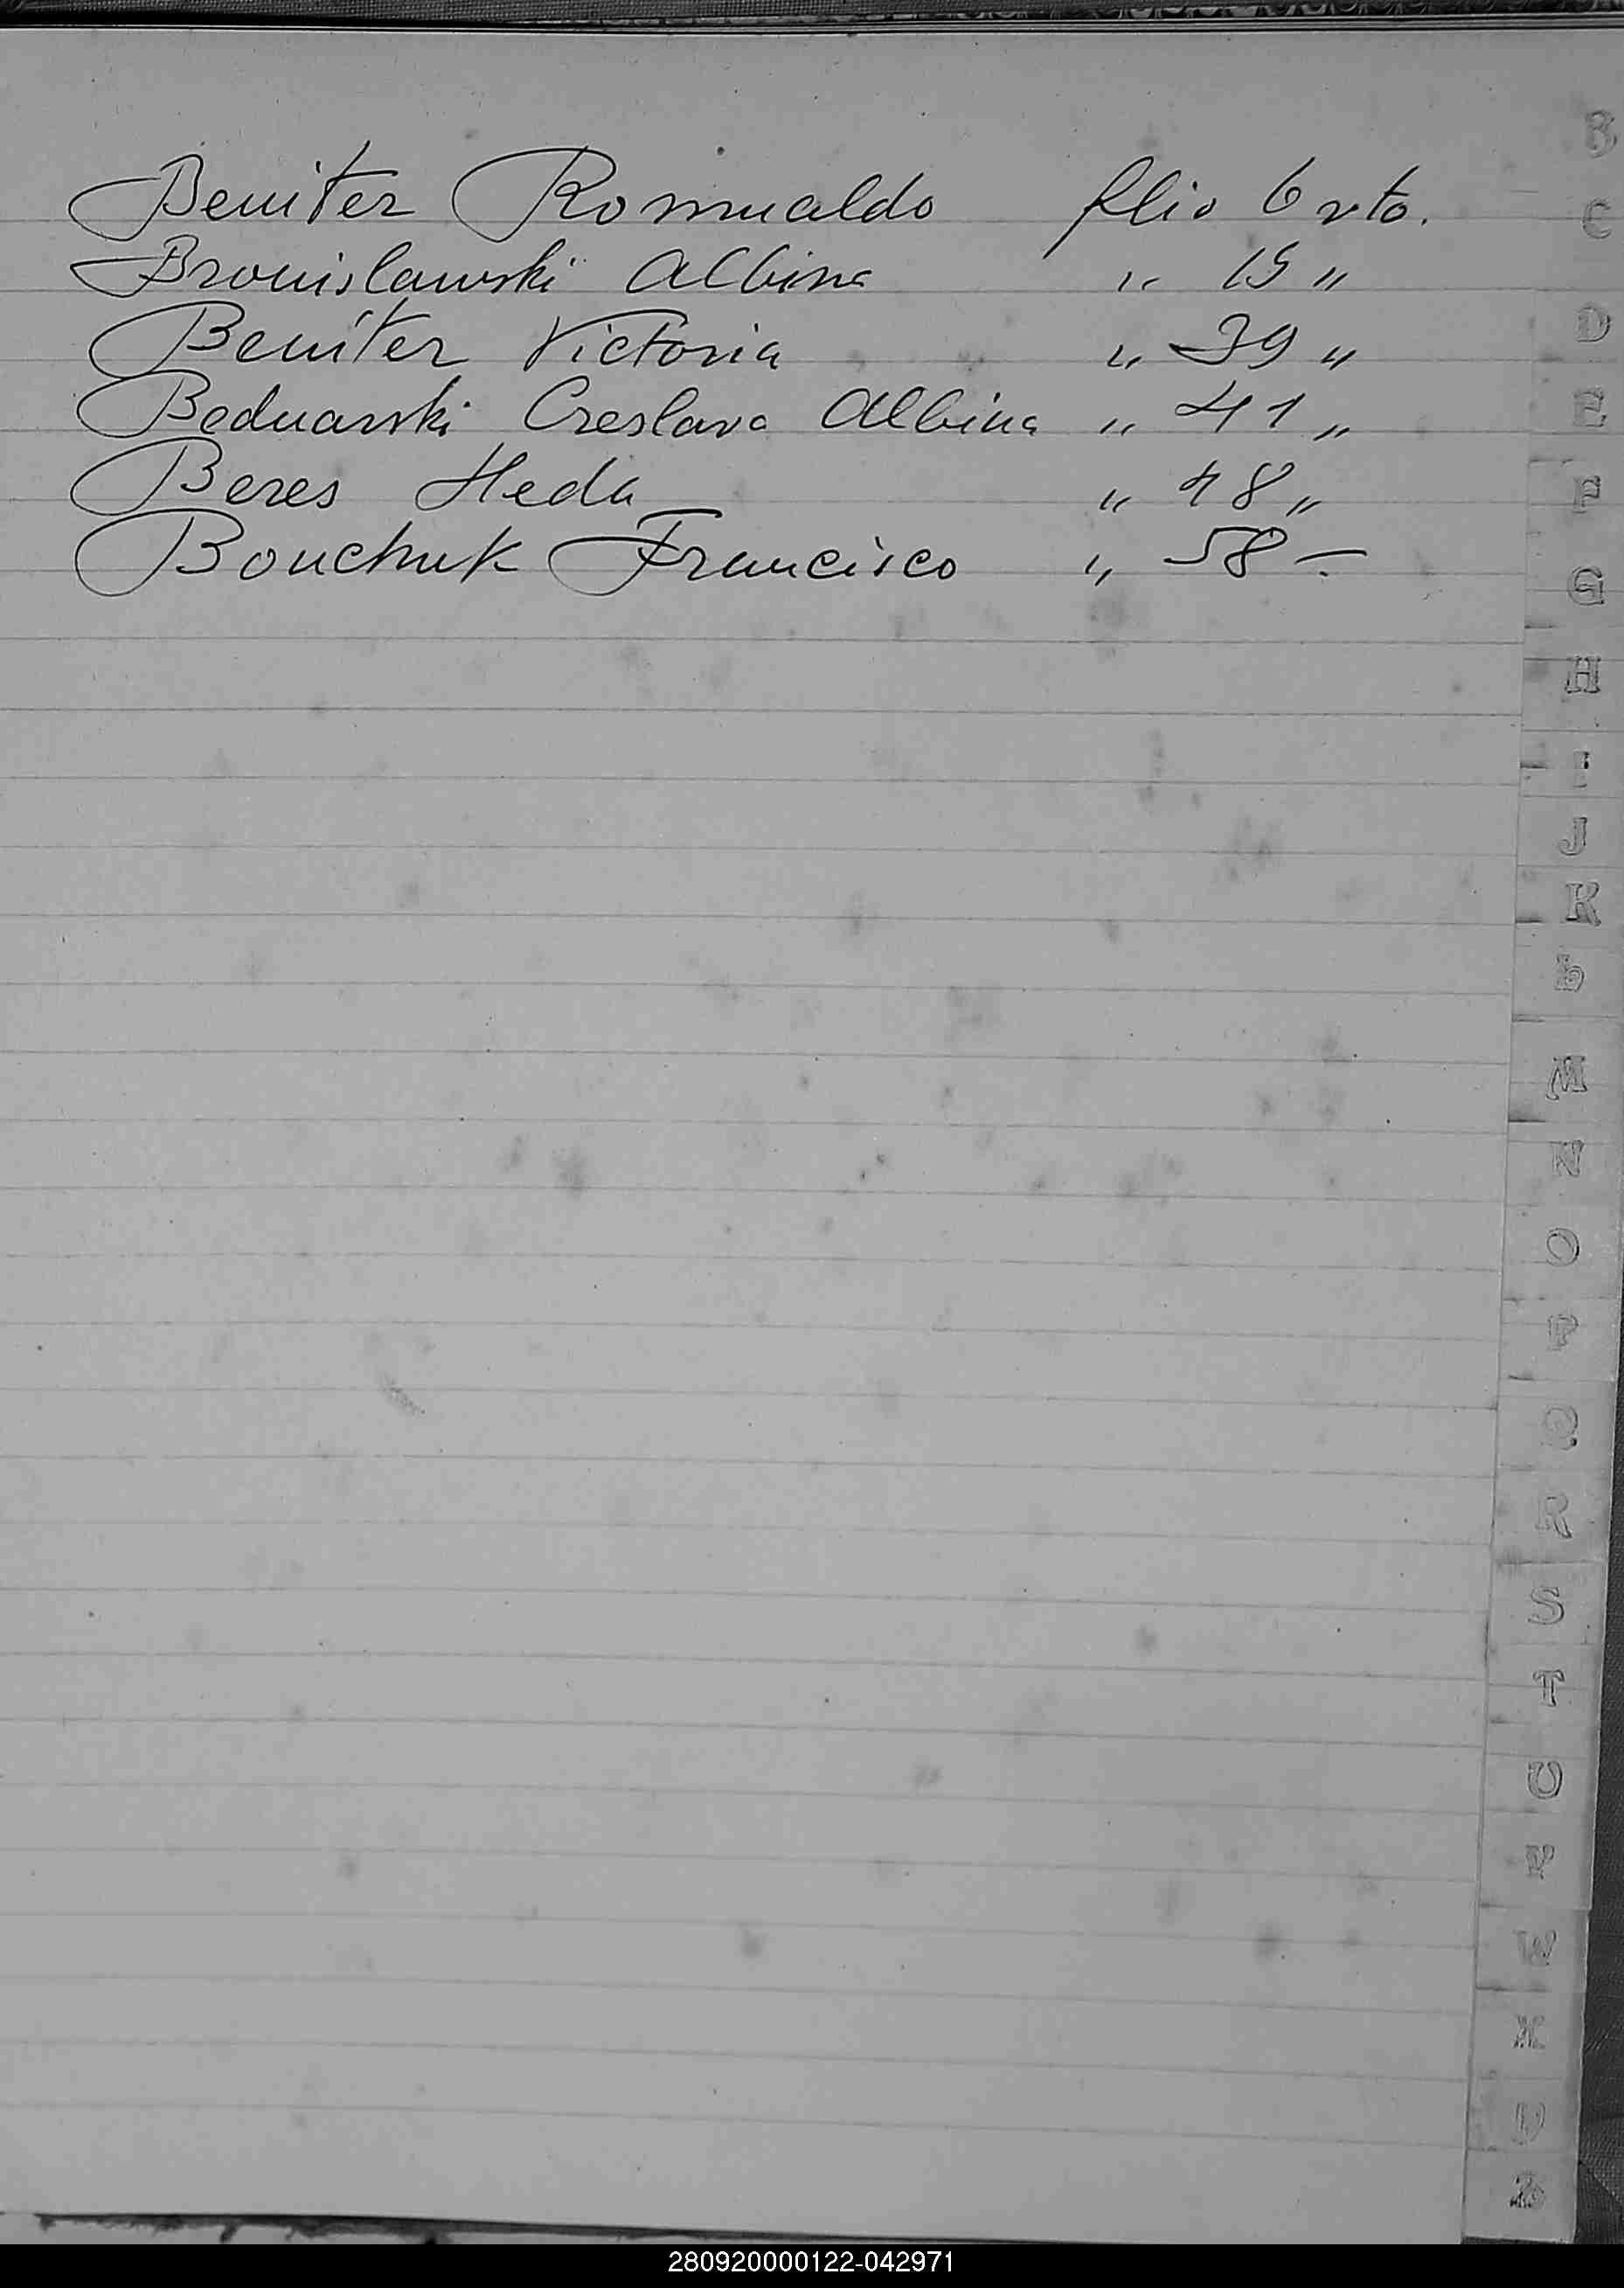 Beniter Romualdo flio 6 vto.
Bronislawski Albina " 15 "
Beniter Victoria " 39 "
Bednarski Creslava Albina " 41 "
Beres Heda " 48 "
Bonchuk Francisco " 58 -
B
C
D
E
F
G
H
I
J
K
L
M
N
O
P
Q
R
S
T
U
V
W
X
Y
Z
280920000122-042971